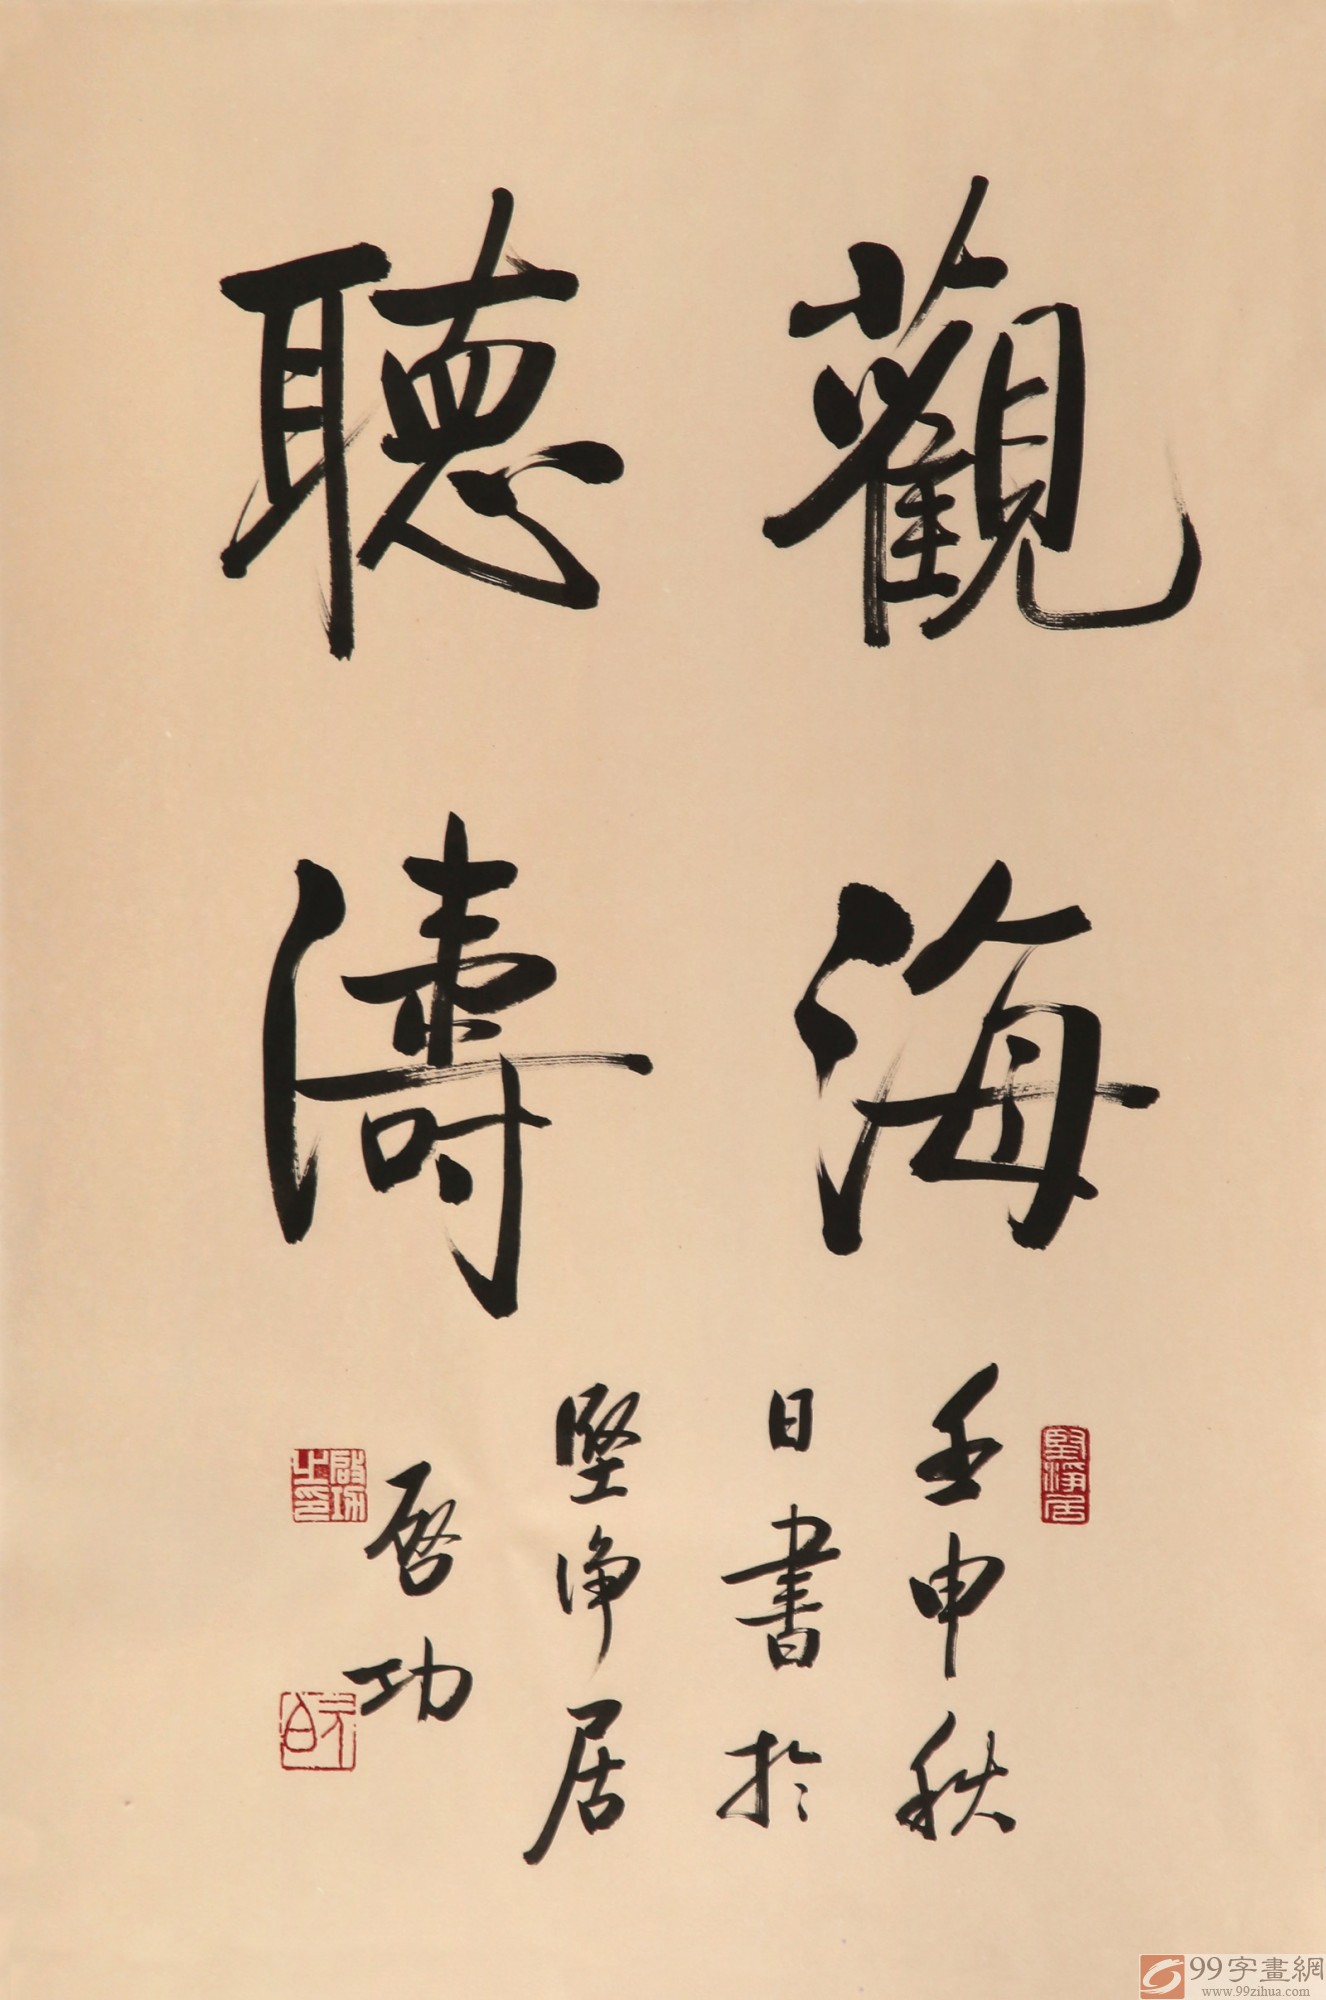 觀海
聽濤
壬申秋
日書於
堅净居
啓功
堅淨居
啟功之印
元白
99字畫網
www.99zihua.com